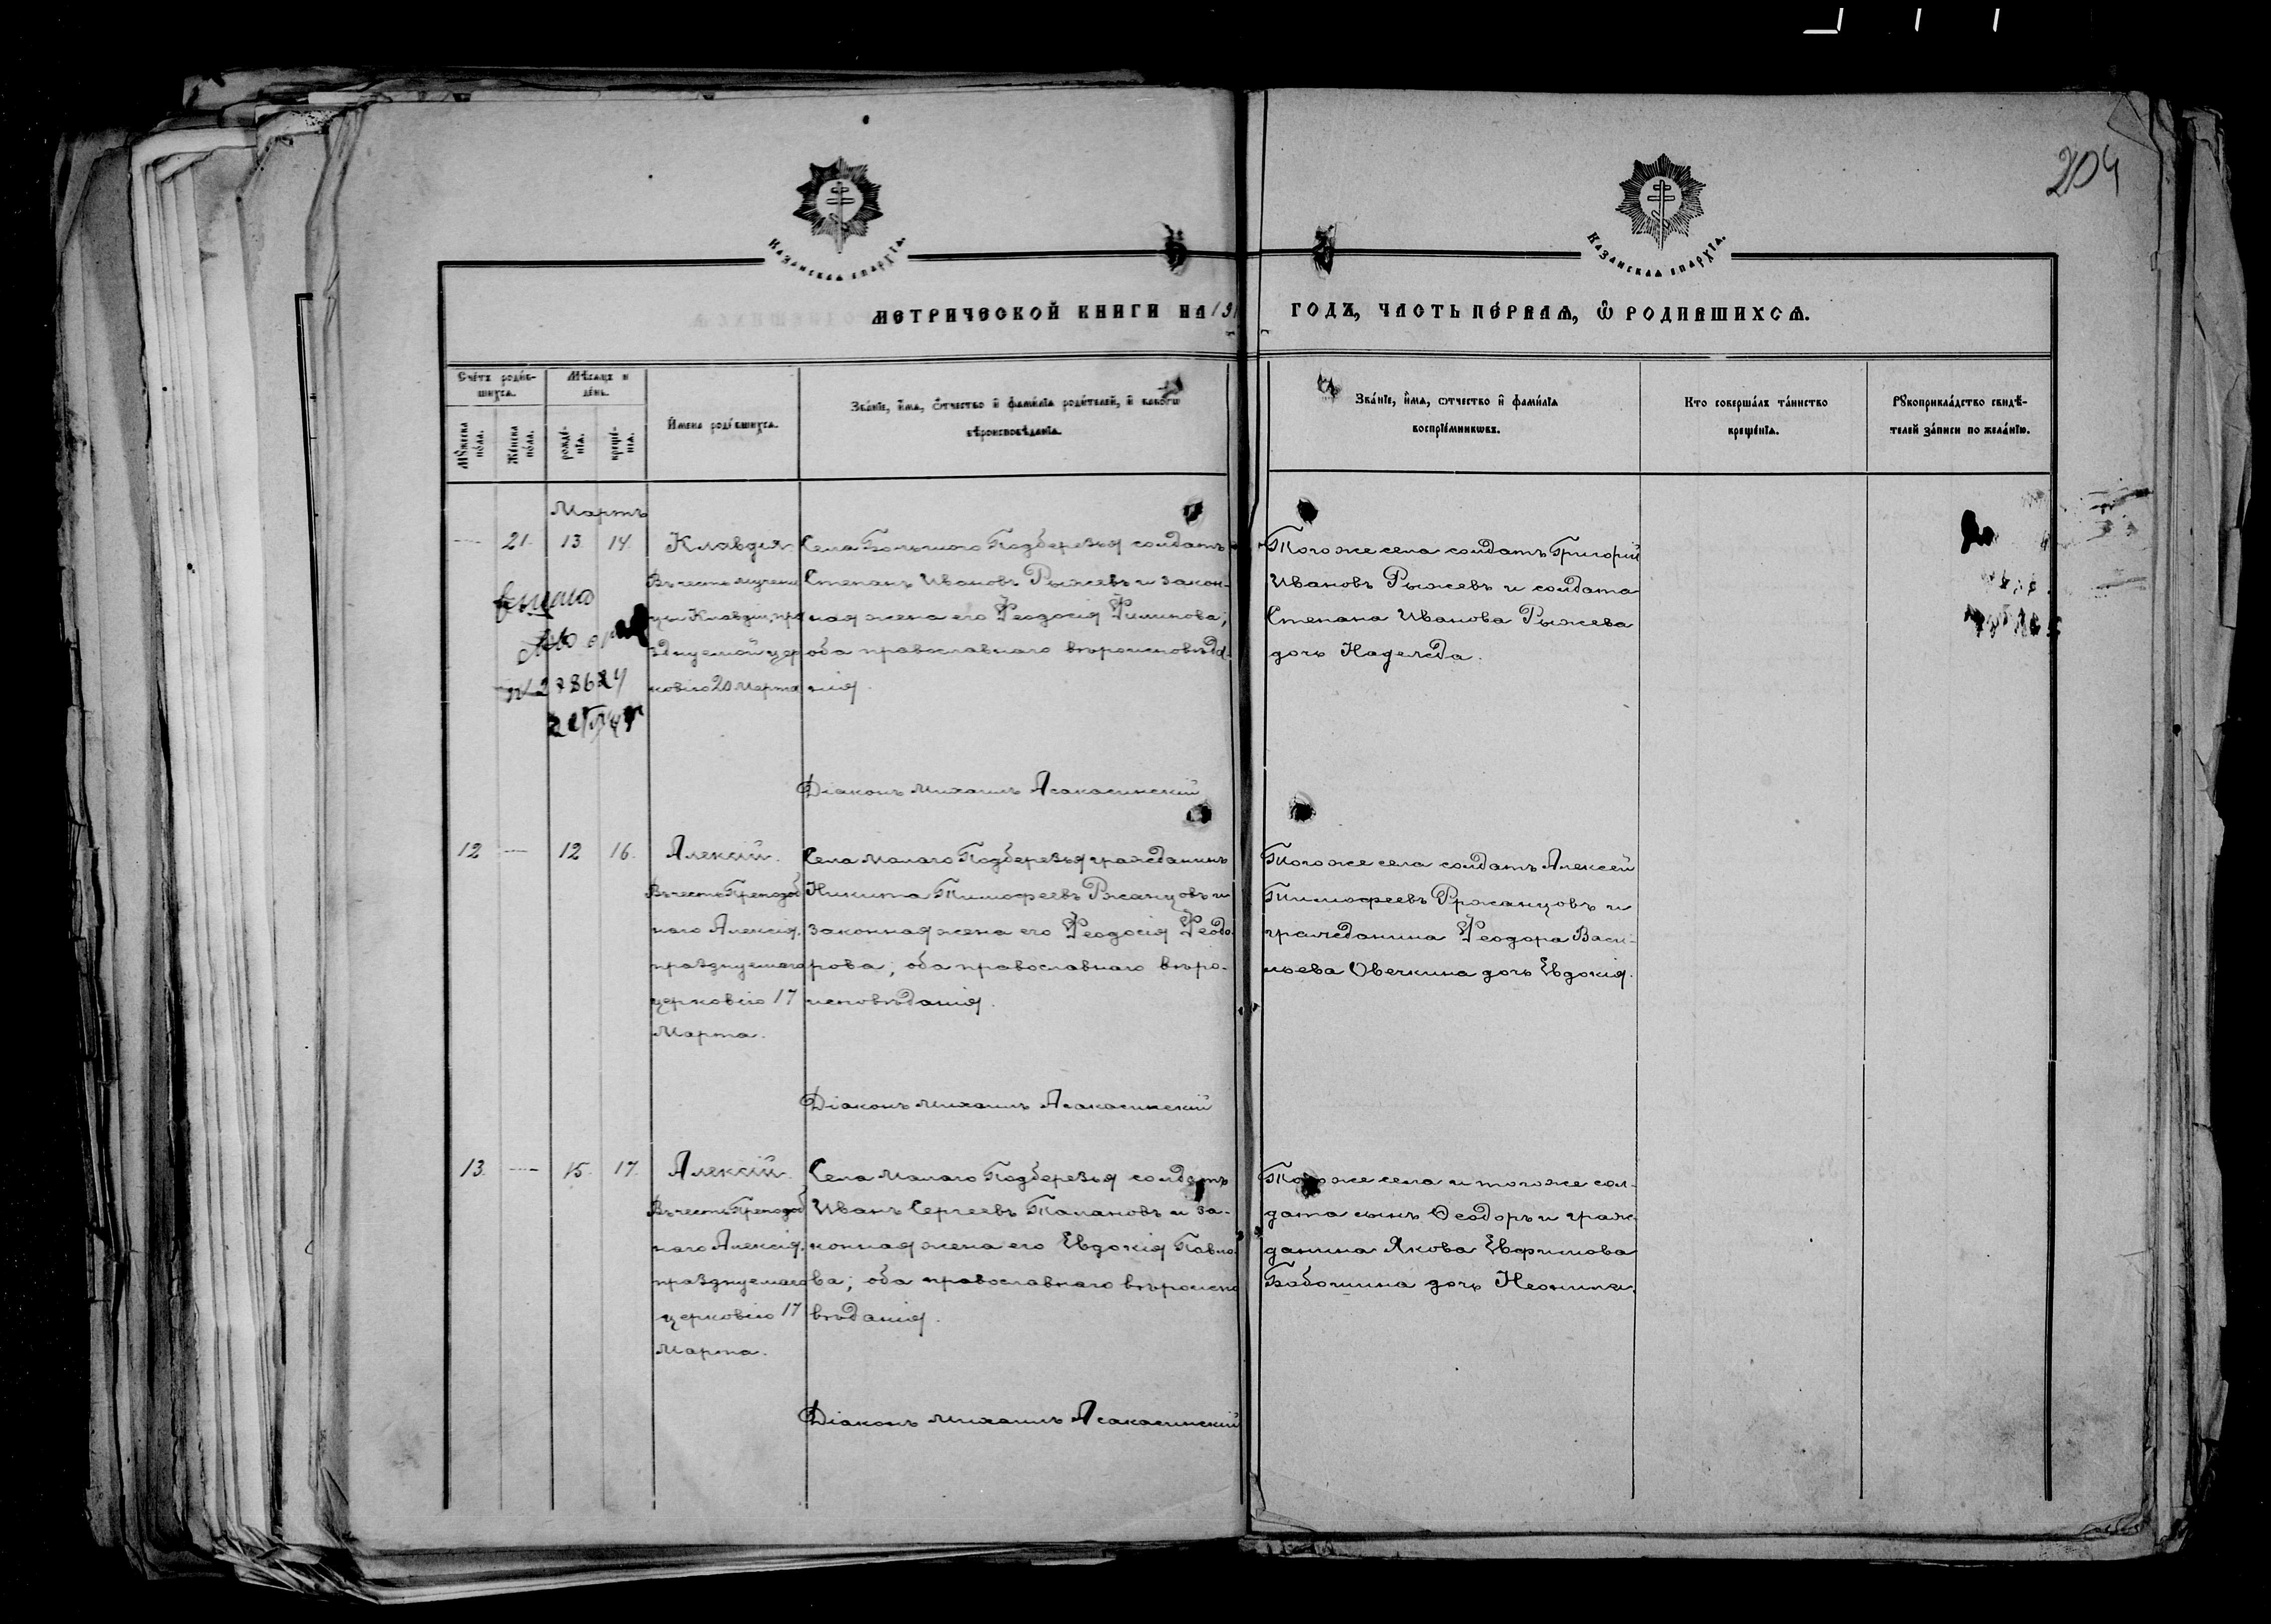 204
Казанская епархїа.
Казанская епархїа.
МЕТРИЧЕСКОЙ КНИГИ НА 191
ГОДЪ, ЧАСТЬ ПЕ́РВАѦ, Ѿ РОДИВШИХСѦ.
Сче́тъ роди́в-
шихса.
Мꙋ́жеска по́ла.
Же́нска по́ла.
Мѣ́сацъ и
де́нь.
рожде́-нїа.
креще́-нїа.
Имена роди́вшихса.
Зва́нїе, и́ма, о́тчество и фами́лїа роди́телей, и каког̀ѡ
вѣроисповѣ́данїа.
Зва́нїе, и́ма, ѻтчество и фами́лїа
воспрїе́мникѡвъ.
Кто соверша́лъ та́инство
креще́нїа.
Рꙋкоприкла́дство свидѣ́-
телей за́писи по жела́нїю.
Мартъ
21. 13. 14. Клавдія.
Въ честь мучени
цы Клавдіи, пра
зднуемой цер
ковію 20 Марта
Села Большого Подберезья солдатъ
Степанъ Ивановъ Рыжевъ и закон-
ная жена его Ѳеодосія Филипова;
оба православнаго вѣроисповѣда-
нія.
Того же села солдатъ Григорій
Ивановъ Рыжевъ и солдата
Степана Иванова Рыжева
дочь Надежда.
Діаконъ Михаилъ Асакасинскій
12 — 12 16. Алексій.
Въ честь Преподоб
наго Алексія,
празднуемаго
церковію 17
Марта.
Села Малаго Подберезья гражданинъ
Никита Тимофеевъ Ржанцовъ и
законная жена его Ѳеодосія Ѳеодо-
рова; оба православнаго вѣро-
исповѣданія.
Того же села солдатъ Алексей
Тимофеевъ Ржанцовъ и
гражданина Ѳеодора Васи-
льева Овечкина дочь Евдокія.
Діаконъ Михаилъ Асакасинскій
13. — 15. 17. Алексій.
Въ честь Преподоб
наго Алексія,
празднуемаго
церковію 17
Марта.
Села Малаго Подберезья солдатъ
Иванъ Сергеевъ Талановъ и за-
конная жена его Евдокія Павло-
ва; оба православнаго вѣроиспо
вѣданія.
Того же села и того же сол-
дата сынъ Ѳеодоръ и граж-
данина Якова Евфимова
Бабошина дочь Неонила.
Діаконъ Михаилъ Асакасинскій